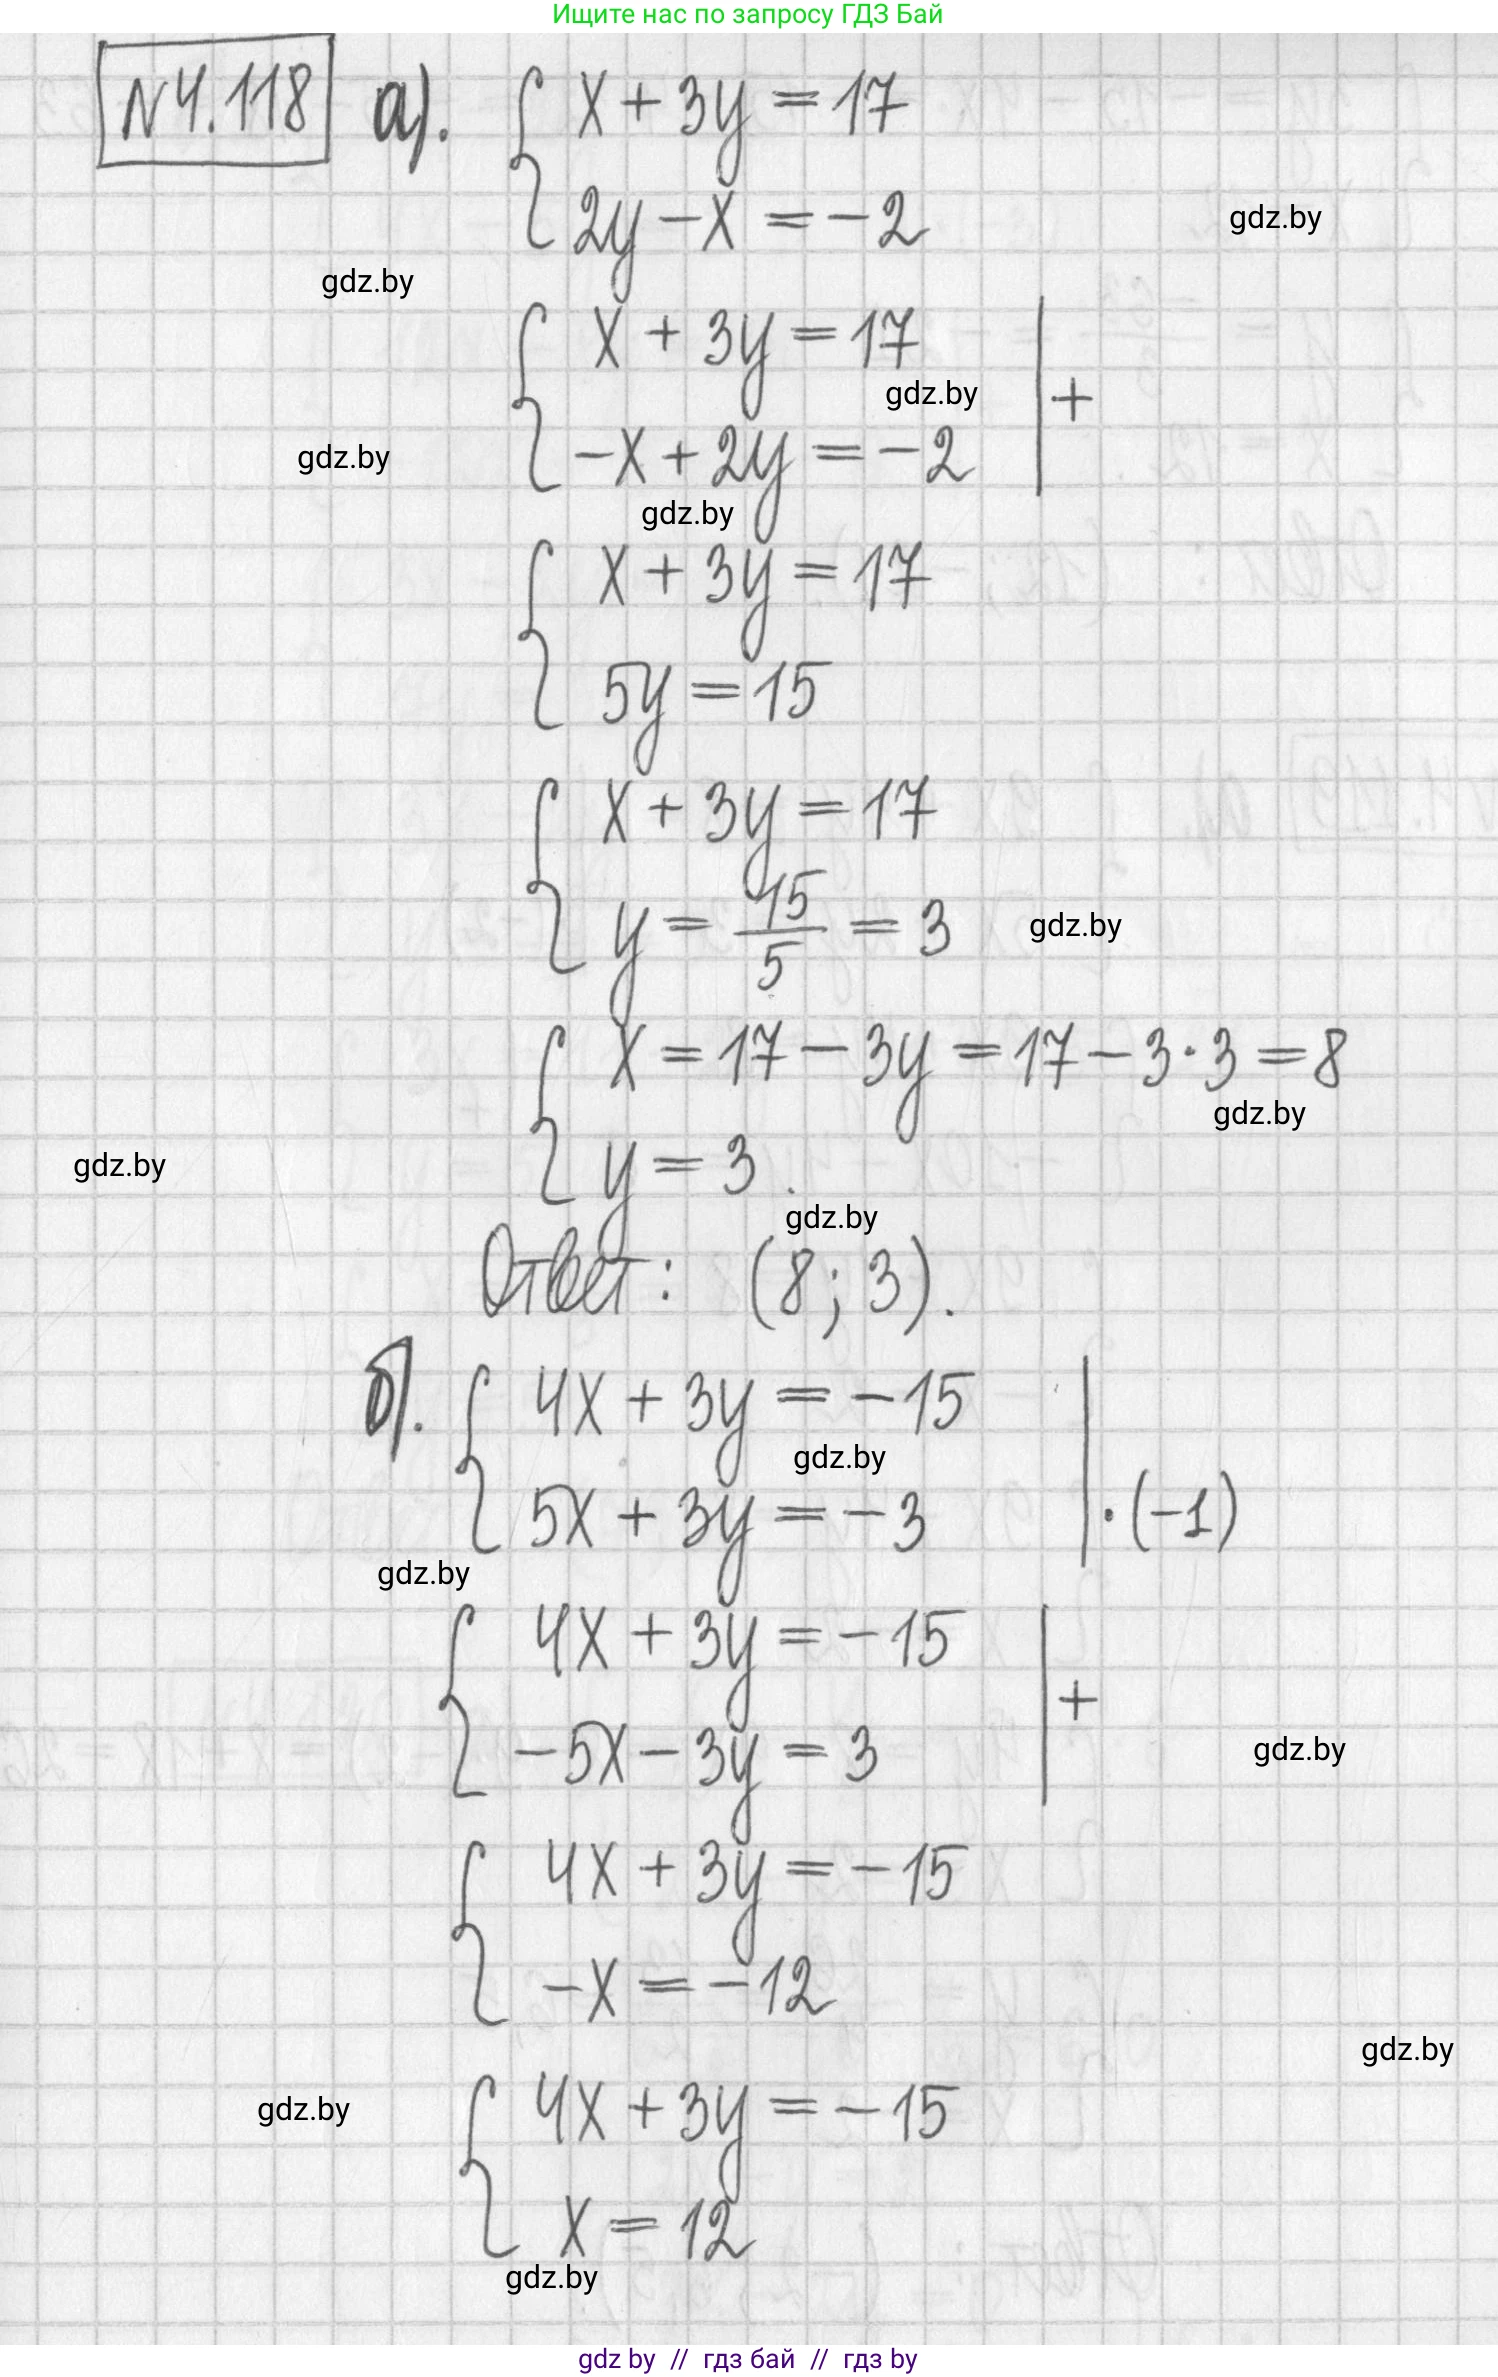 Ищите нас по запросу ГДЗ Бай
N4.118 а). { x + 3y = 17
2y - x = -2
gdz.by
gdz.by
{ x + 3y = 17
gdz.by
| +
-x + 2y = -2
gdz.by
gdz.by
{ x + 3y = 17
5y = 15
{ x + 3y = 17
y = 15/5 = 3
gdz.by
{ x = 17 - 3y = 17 - 3·3 = 8
gdz.by
y = 3.
gdz.by
gdz.by
Ответ: (8; 3).
б). { 4x + 3y = -15
gdz.by
5x + 3y = -3 | ·(-1)
gdz.by
{ 4x + 3y = -15
| +
-5x - 3y = 3
gdz.by
{ 4x + 3y = -15
-x = -12
gdz.by
{ 4x + 3y = -15
gdz.by
x = 12
gdz.by
gdz by // гдз бай // гдз by